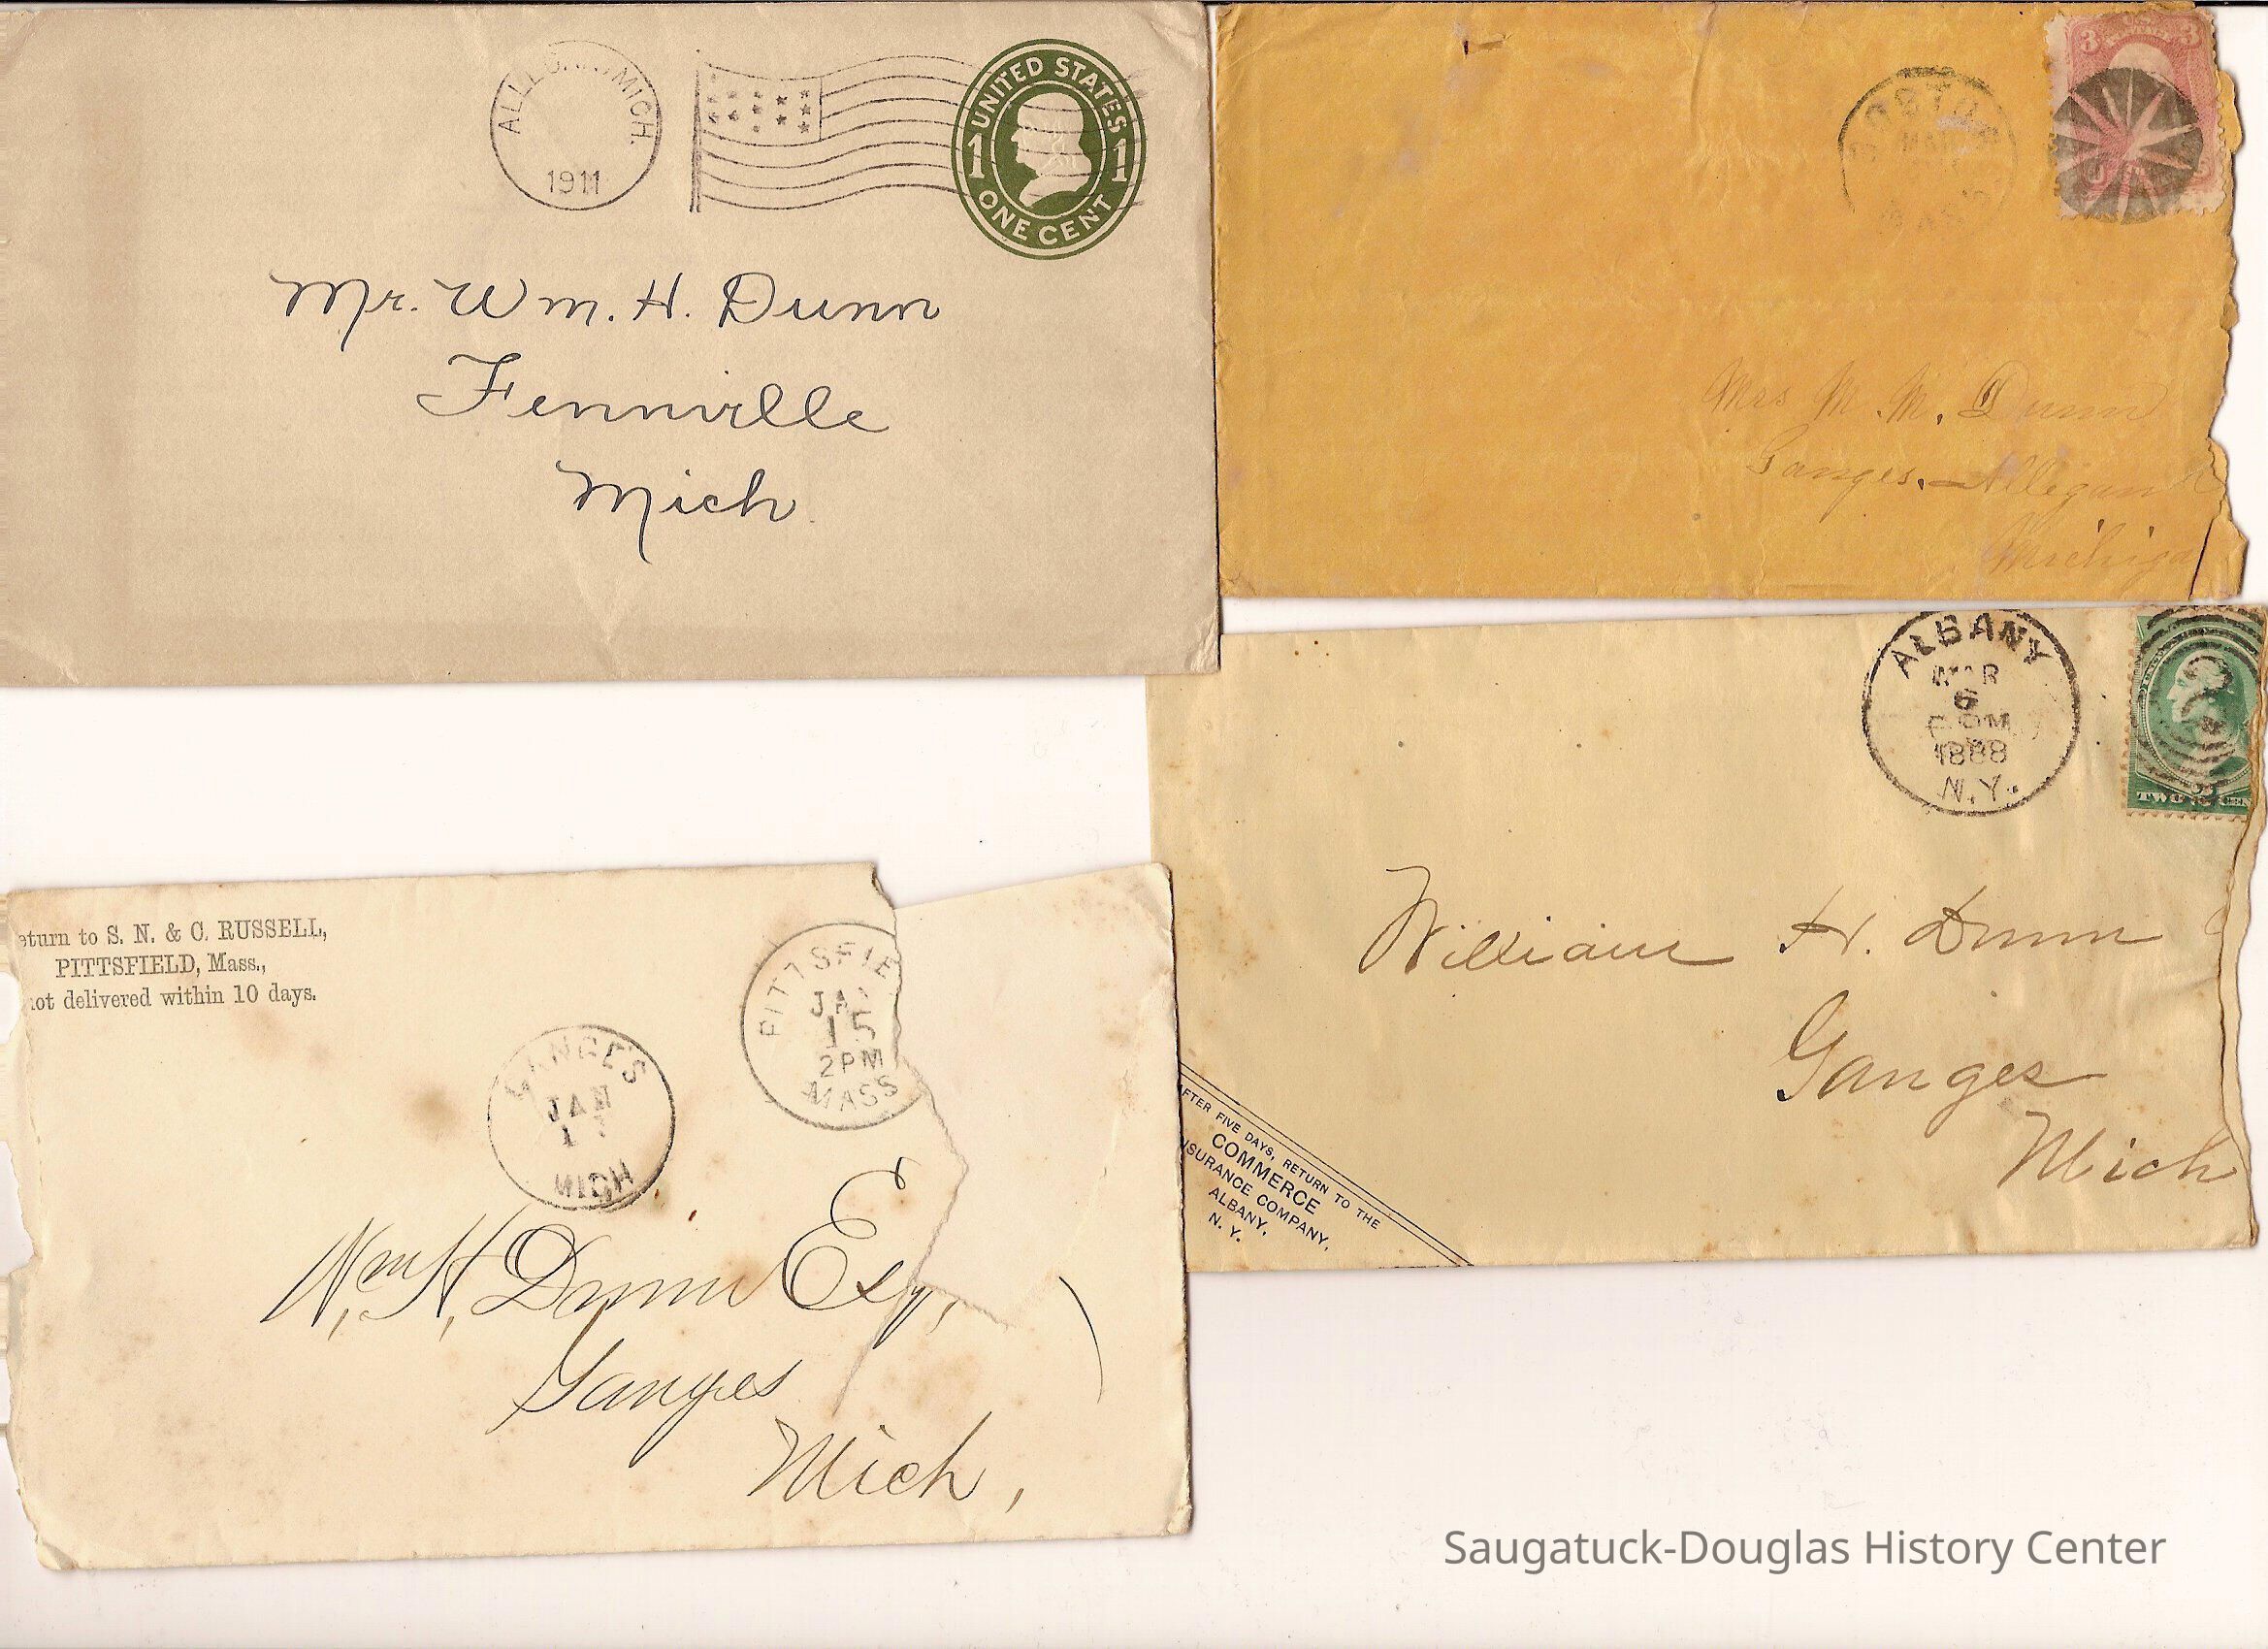 MICH.
1911
UNITED STATES
1 1
ONE CENT
Mr. Wm. H. Dunn
Fennville
Mich
3 3
Mrs M. M. Dunn
Ganges, Allegan
Michiga
ALBANY
MAR
6
1888
N.Y.
TWO CEN
William H. Dunn
Ganges
Mich
FTER FIVE DAYS, RETURN TO THE
COMMERCE
NSURANCE COMPANY,
ALBANY,
N. Y.
eturn to S. N. & C. RUSSELL,
PITTSFIELD, Mass.,
not delivered within 10 days.
PITTSFIE
JAN
15
2PM
MASS
GANGES
JAN
MICH
Wm. H. Dunn Esq,
Ganges
Mich,
Saugatuck-Douglas History Center